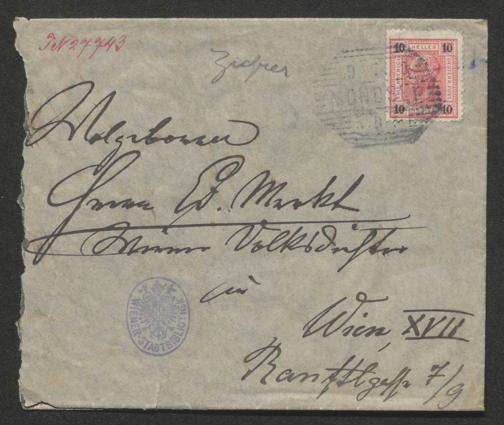 IN 27743
Ziehrer
10 HELLER 10
10 10
MONDSEE
Wolgeboren
Herrn Ed. Merkt
Wiener Volksdichter
in
WIENER STADTBIBLIOTHEK
Wien, XVII
Ranftlgasse 7/9